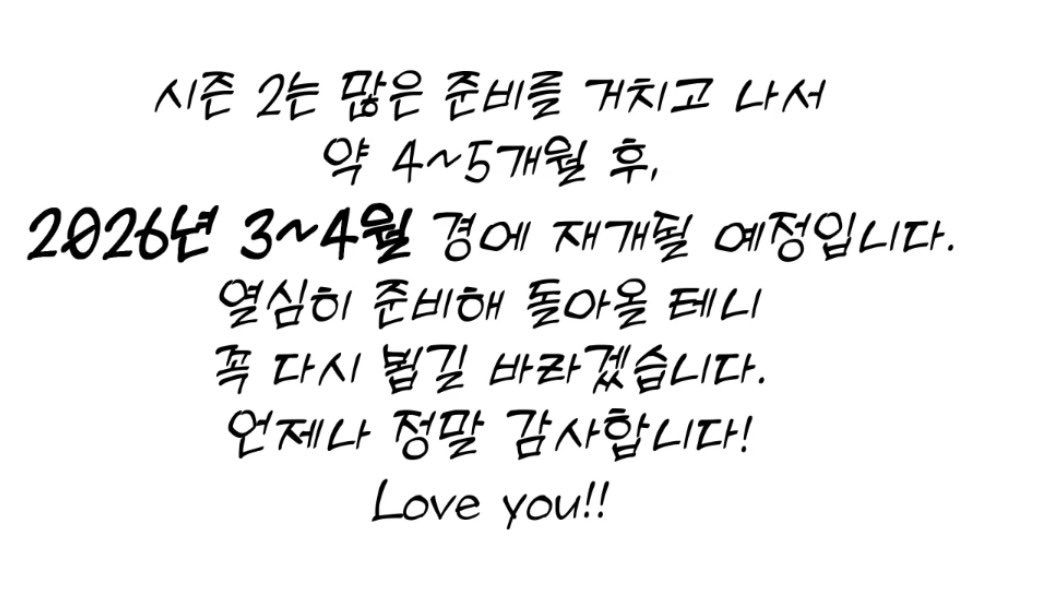 시즌 2는 많은 준비를 거치고 나서
약 4~5개월 후,
2026년 3~4월 경에 재개될 예정입니다.
열심히 준비해 돌아올 테니
꼭 다시 뵙길 바라겠습니다.
언제나 정말 감사합니다!
Love you!!